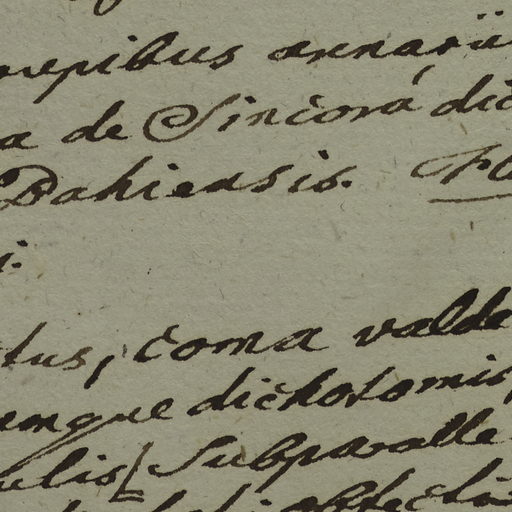 repibus arenarii
a de Sincorá dic
Bahiensis. Fl
i.
tus, coma valde
umque dichotomis,
ulis/ Subparalle